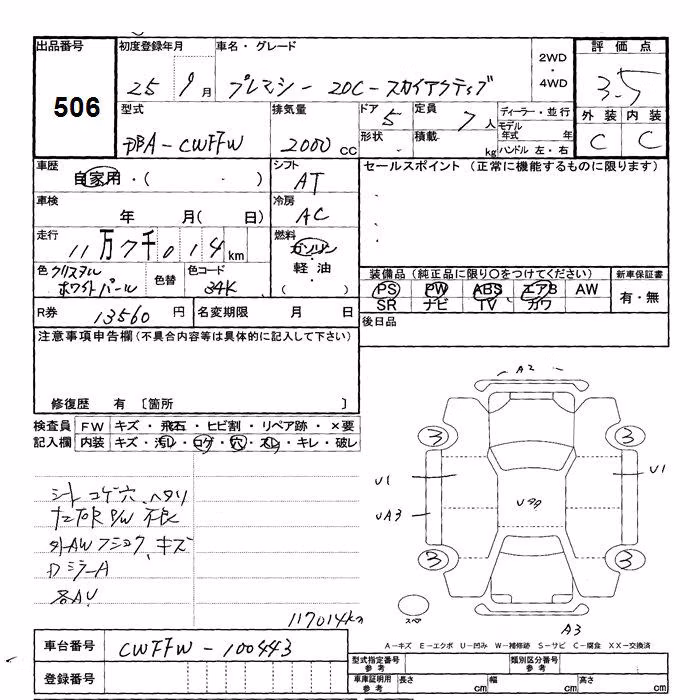 出品番号
506
初度登録年月
25 9 月
車名・グレード
プレマシー 20C-スカイアクティブ
2WD
・
4WD
評価点
3.5
外装 内装
C C
型式
DBA-CWFFW
排気量
2000 CC
ドア 5
形状
定員 7 人
積載 kg
ディーラー・並行
モデル年式 年
ハンドル 左・右
車歴
自家用・( )
シフト
AT
セールスポイント (正常に機能するものに限ります)
車検
年 月( 日)
冷房
AC
走行
11万7千014 km
燃料
ガソリン
・
軽油
( )
色 クリスタル
ホワイトパール
色替
色コード
34K
装備品 (純正品に限り○をつけてください)
PS PW ABS エアB AW
SR ナビ TV カワ
新車保証書
有・無
R券 13560 円
名変期限 月 日
後日品
注意事項申告欄(不具合内容等は具体的に記入して下さい)
修復歴 有 〔箇所 〕
検査員
記入欄
FW キズ・飛石・ヒビ割・リペア跡・×要
内装 キズ・汚レ・コゲ・穴・スレ・キレ・破レ
シートコゲ穴、ヘタリ
P/W 不良
外AW キズ
DミラーA
各AU
117014km
A2
3 3
U1 U1
UA3
3 3
スペア
A3
A-キズ E-エクボ U-凹み W-補修跡 S-サビ C-腐食 XX-交換済
車台番号 CWFFW-100443
登録番号
型式指定番号
参考
類別区分番号
参考
車庫証明用
参考
長さ cm 幅 cm 高さ cm